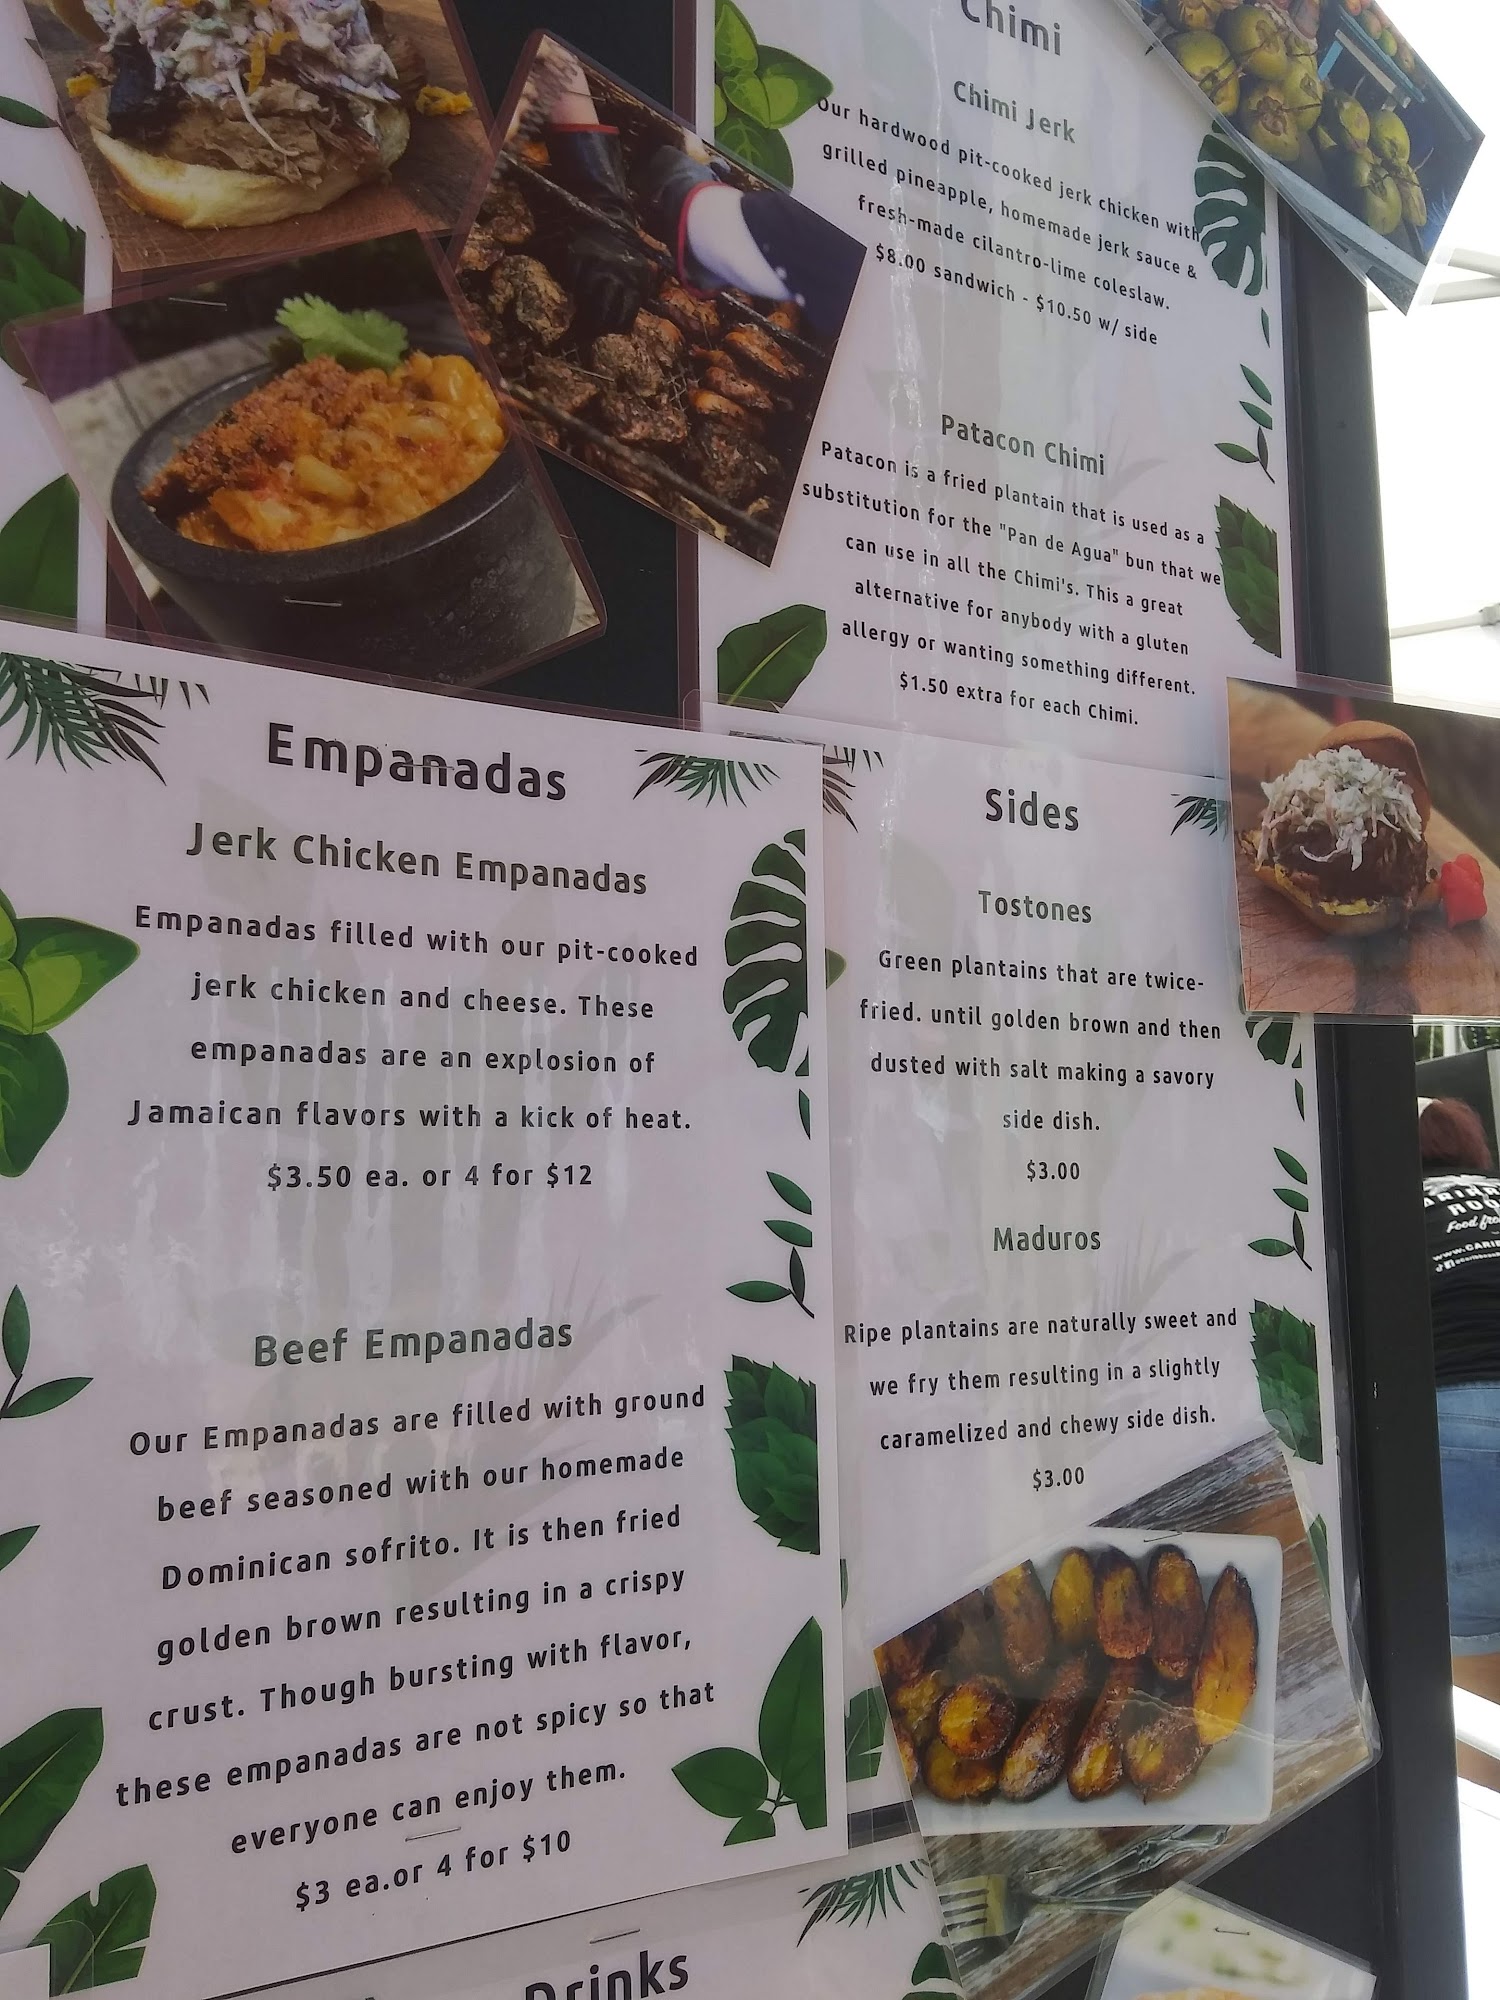 Chimi
Chimi Jerk
Our hardwood pit-cooked jerk chicken with
grilled pineapple, homemade jerk sauce &
fresh-made cilantro-lime coleslaw.
$8.00 sandwich - $10.50 w/ side
Patacon Chimi
Patacon is a fried plantain that is used as a
substitution for the "Pan de Agua" bun that we
can use in all the Chimi's. This a great
alternative for anybody with a gluten
allergy or wanting something different.
$1.50 extra for each Chimi.
Empanadas
Jerk Chicken Empanadas
Empanadas filled with our pit-cooked
jerk chicken and cheese. These
empanadas are an explosion of
Jamaican flavors with a kick of heat.
$3.50 ea. or 4 for $12
Beef Empanadas
Our Empanadas are filled with ground
beef seasoned with our homemade
Dominican sofrito. It is then fried
golden brown resulting in a crispy
crust. Though bursting with flavor,
these empanadas are not spicy so that
everyone can enjoy them.
$3 ea.or 4 for $10
Sides
Tostones
Green plantains that are twice-
fried. until golden brown and then
dusted with salt making a savory
side dish.
$3.00
Maduros
Ripe plantains are naturally sweet and
we fry them resulting in a slightly
caramelized and chewy side dish.
$3.00
Drinks
Food